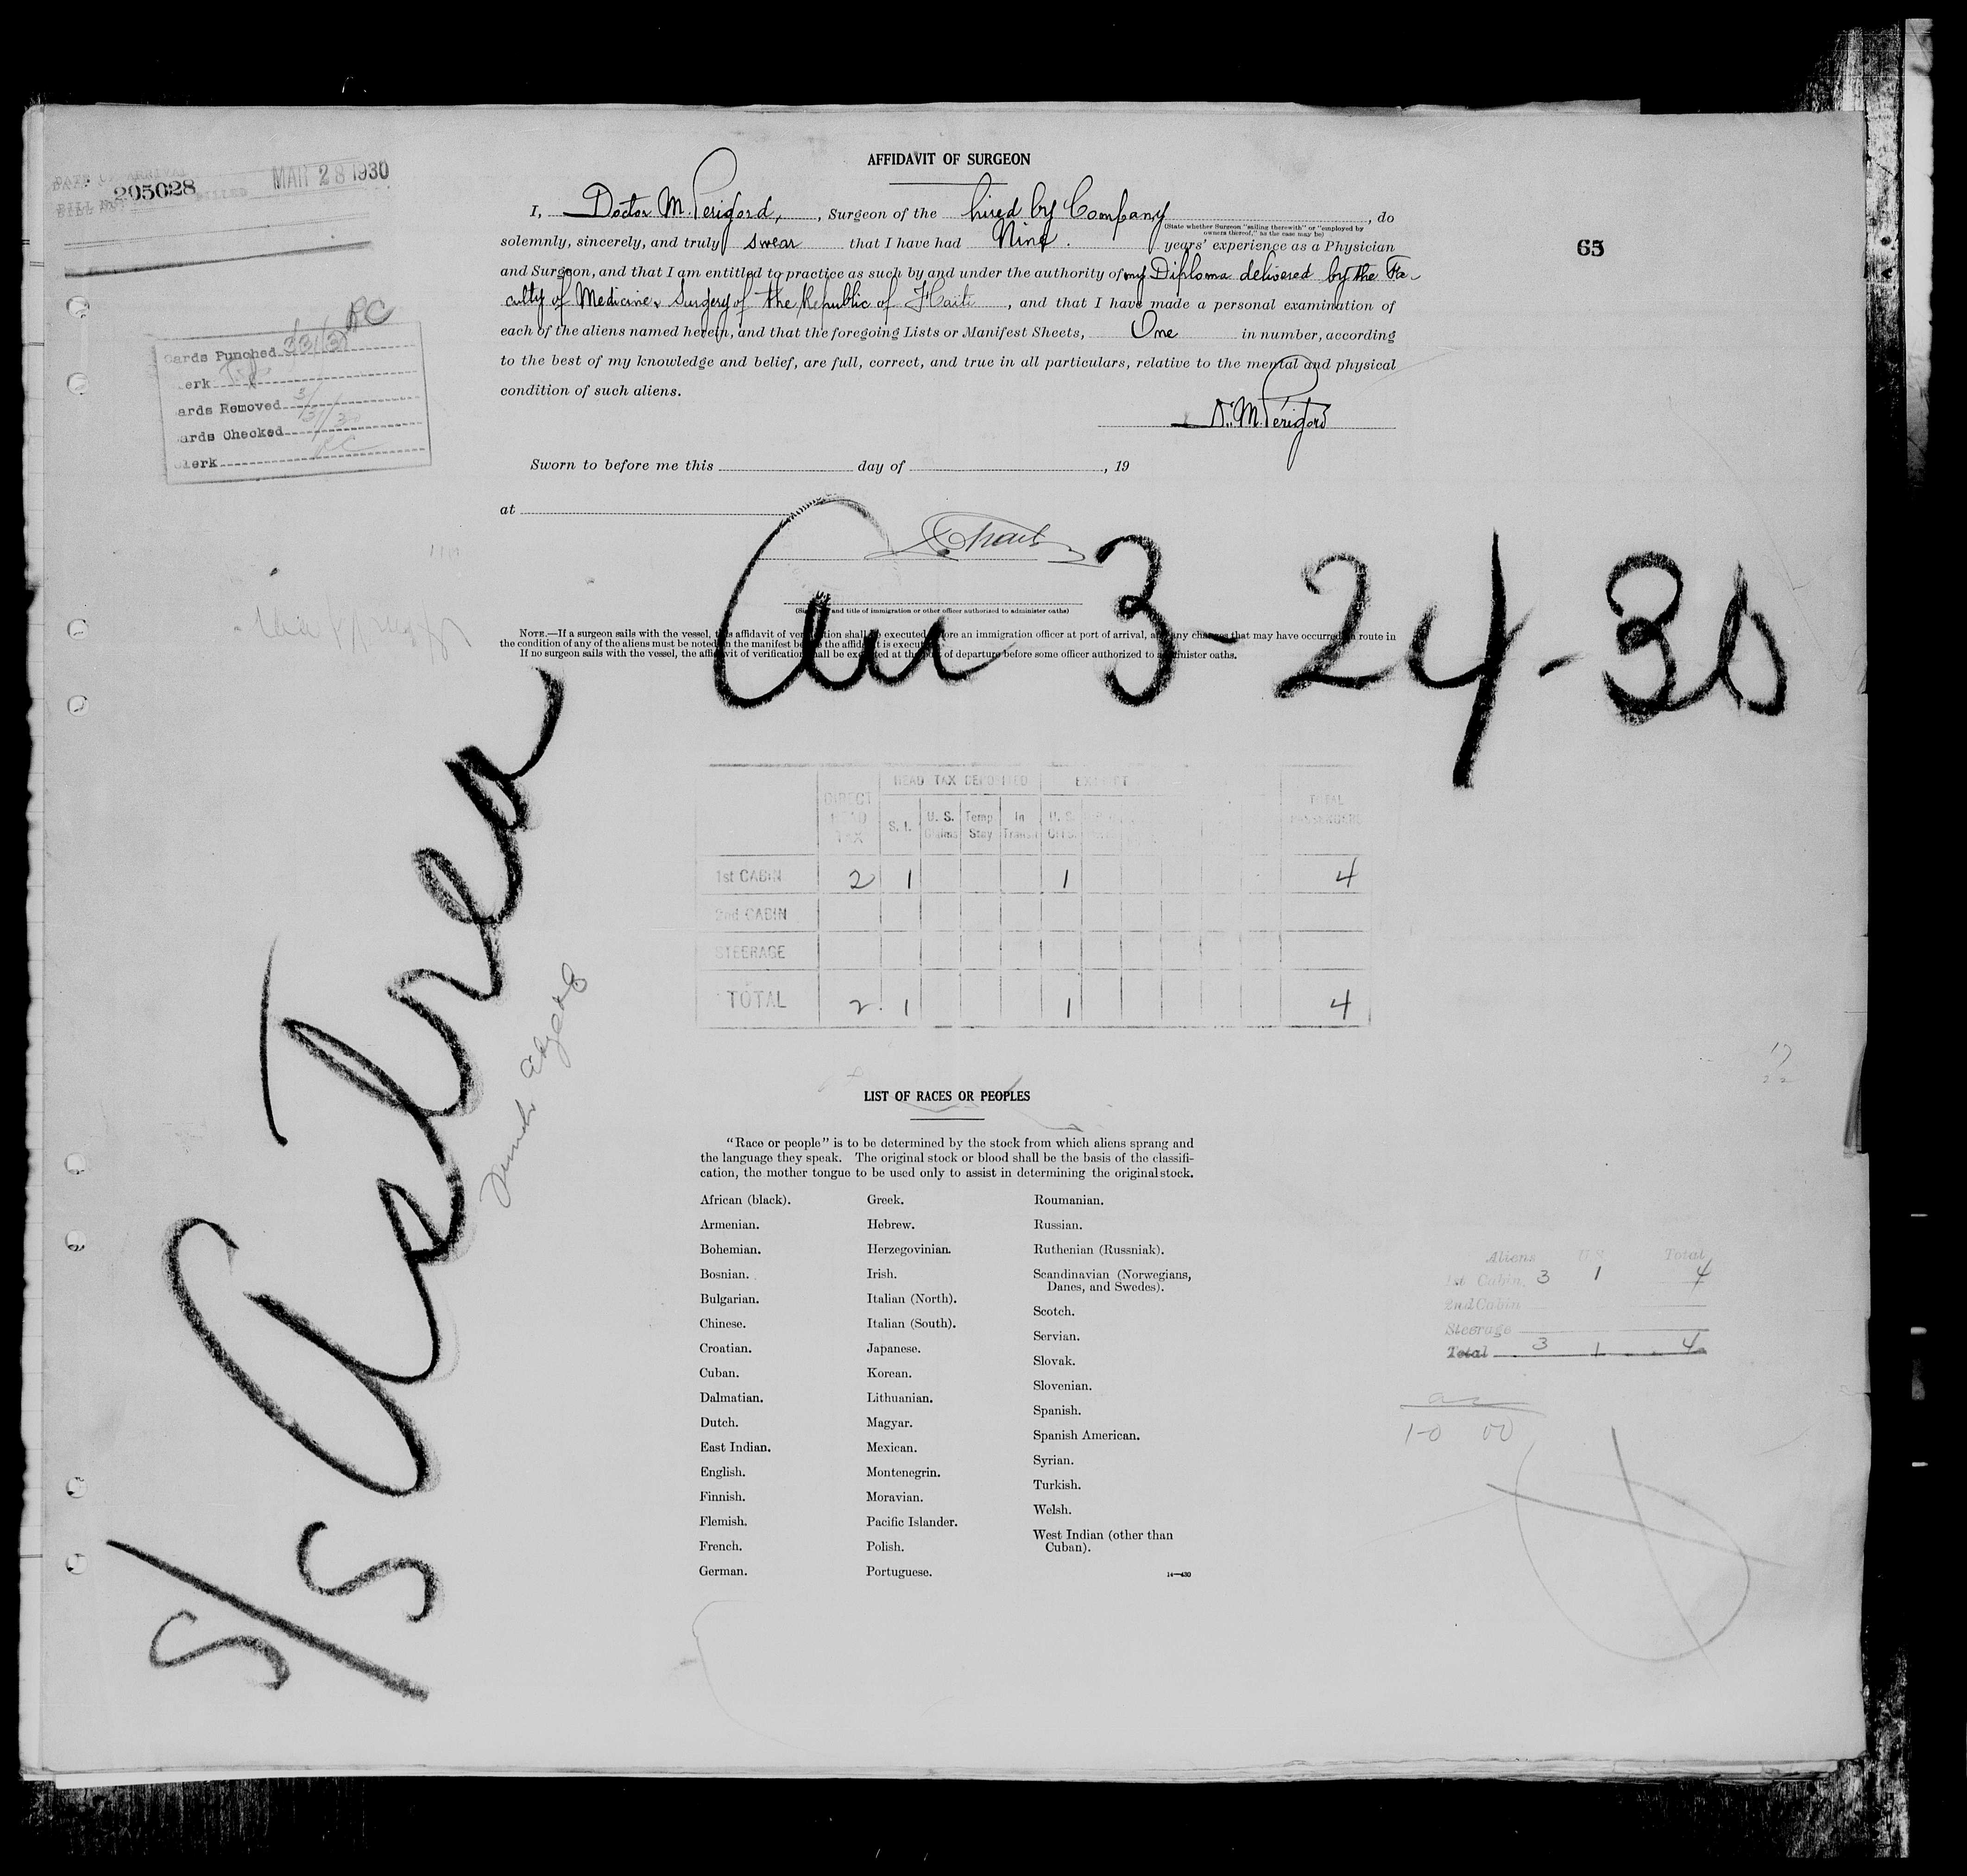 DATE OF ARRIVAL
BILL No. 205028 BILLED MAR 28 1930
AFFIDAVIT OF SURGEON
I, Doctor M. Perigord, , Surgeon of the hired by Company , do
(State whether Surgeon "sailing therewith" or "employed by
owners thereof," as the case may be)
solemnly, sincerely, and truly swear that I have had Nine. years' experience as a Physician
65
and Surgeon, and that I am entitled to practice as such by and under the authority of my Diploma delivered by the Fa-
culty of Medicine & Surgery of the Republic of Haiti , and that I have made a personal examination of
each of the aliens named herein, and that the foregoing Lists or Manifest Sheets, One in number, according
to the best of my knowledge and belief, are full, correct, and true in all particulars, relative to the mental and physical
condition of such aliens.
Dr. M. Périgord
RC
Cards Punched 3/31/30
lerk
ards Removed 3/
ards Checked 31/30
Clerk RC
Sworn to before me this day of , 19
at
Arr 3-24-30
(Si and title of immigration or other officer authorized to administer oaths)
NOTE.—If a surgeon sails with the vessel, this affidavit of verification shall be executed before an immigration officer at port of arrival, and any changes that may have occurred en route in
the condition of any of the aliens must be noted on the manifest before the affidavit is executed.
If no surgeon sails with the vessel, the affidavit of verification shall be executed at the port of departure before some officer authorized to administer oaths.
S/S Astrea
DIRECT HEAD TAX HEAD TAX DEPOSITED EXEMPT TOTAL PASSENGERS
S. I. U. S. Claims Temp Stay In Transit U. S. Citz.
1st CABIN 2 1 1 4
2nd CABIN
STEERAGE
TOTAL 2 1 1 4
LIST OF RACES OR PEOPLES
"Race or people" is to be determined by the stock from which aliens sprang and
the language they speak. The original stock or blood shall be the basis of the classifi-
cation, the mother tongue to be used only to assist in determining the original stock.
African (black).
Armenian.
Bohemian.
Bosnian.
Bulgarian.
Chinese.
Croatian.
Cuban.
Dalmatian.
Dutch.
East Indian.
English.
Finnish.
Flemish.
French.
German.
Greek.
Hebrew.
Herzegovinian.
Irish.
Italian (North).
Italian (South).
Japanese.
Korean.
Lithuanian.
Magyar.
Mexican.
Montenegrin.
Moravian.
Pacific Islander.
Polish.
Portuguese.
Roumanian.
Russian.
Ruthenian (Russniak).
Scandinavian (Norwegians,
Danes, and Swedes).
Scotch.
Servian.
Slovak.
Slovenian.
Spanish.
Spanish American.
Syrian.
Turkish.
Welsh.
West Indian (other than
Cuban).
14—430
17
22
Aliens U.S. Total
1st Cabin 3 1 4
2nd Cabin
Steerage
Total 3 1 4
1-0 00